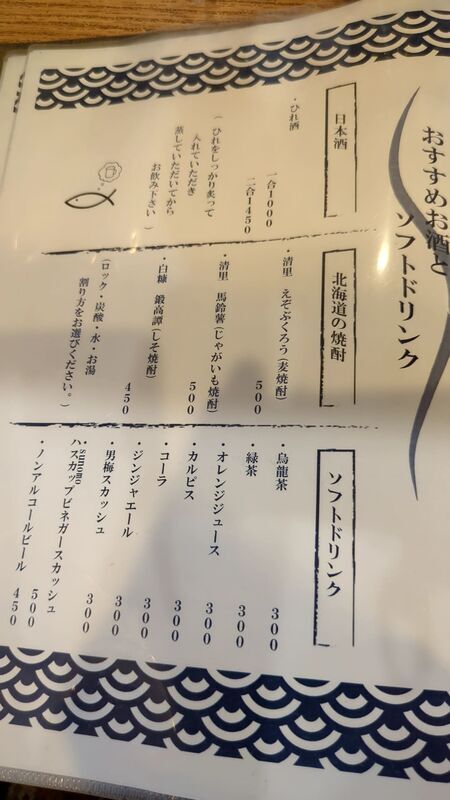 おすすめお酒と
ソフトドリンク
日本酒
・ひれ酒
一合1000
二合1450
(ひれをしっかり炙って
入れていただき
蒸していただいてから
お飲み下さい)
北海道の焼酎
・清里 えぞふくろう(麦焼酎)
500
・清里 馬鈴薯(じゃがいも焼酎)
500
・白糠 鍛高譚(しそ焼酎)
450
(ロック・炭酸・水・お湯
割り方をお選びください。)
ソフトドリンク
・烏龍茶 300
・緑茶 300
・オレンジジュース 300
・カルピス 300
・コーラ 300
・ジンジャエール 300
・男梅スカッシュ 300
・sunomo
ハスカップビネガースカッシュ 500
・ノンアルコールビール 450